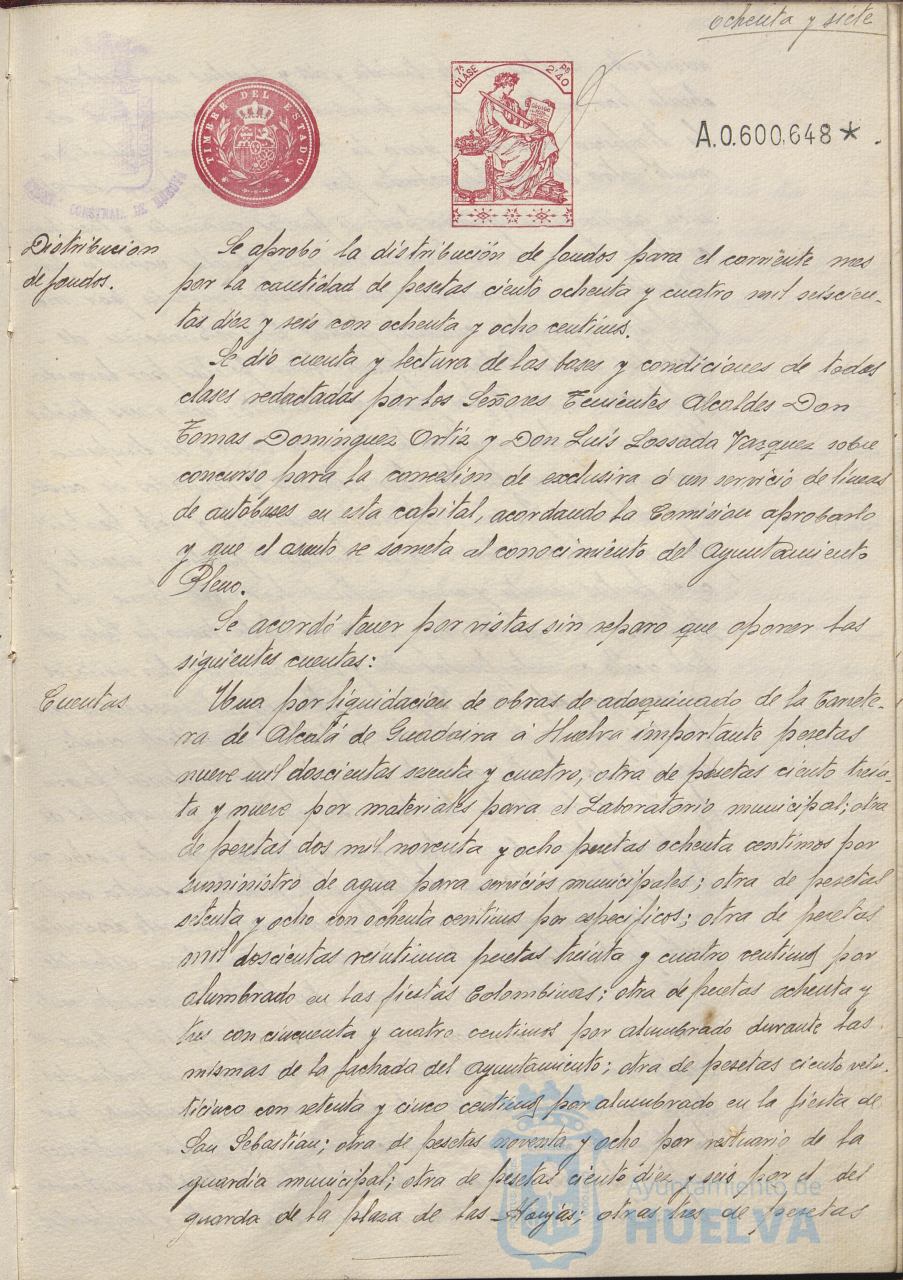 ochenta y siete
TIMBRE DEL ESTADO
7ª CLASE
Pts 2'40
A.0.600,648*
CONSTNAL. DE HUELVA
Distribucion
de fondos.
Se aprobó la distribución de fondos para el corriente mes
por la cantidad de pesetas ciento ochenta y cuatro mil seiscien-
tas diez y seis con ochenta y ocho centims.
Se dio cuenta y lectura de las bases y condiciones de todas
clases redactadas por los Señores Tenientes Alcaldes Don
Tomas Domínguez Ortíz y Don Luís Lossada Vazquez sobre
concurso para la concesion de exclusiva á un servicio de líneas
de autóbuses en esta capital, acordando la Comision aprobarlo
y que el asunto se someta al conocimiento del Ayuntamiento
Pleno.
Se acordó tener por vistas sin reparo que oponer las
siguientes cuentas:
Cuentas
Una por liquidacion de obras de adoquinado de la Carrete-
ra de Alcalá de Guadaira á Huelva importante pesetas
nueve mil doscientas sesenta y cuatro; otra de pesetas ciento trein-
ta y nueve por materiales para el Laboratorio municipal; otra
de pesetas dos mil noventa y ocho pesetas ochenta centimos por
suministro de agua para servicios municipales; otra de pesetas
setenta y ocho con ochenta centims por especificos; otra de pesetas
mil doscientas veintiuna pesetas treinta y cuatro centims por
alumbrado en las fiestas Colombinas; otra de pesetas ochenta y
tres con cincuenta y cuatro centimos por alumbrado durante las
mismas de la fachada del Ayuntamiento; otra de pesetas ciento vein-
ticinco con setenta y cinco centims por alumbrado en la fiesta de
San Sebastian; otra de pesetas noventa y ocho por vestuario de la
guardia municipal; otra de pesetas ciento diez y seis por el del
guarda de la plaza de las Monjas; otras tres de pesetas
Ayuntamiento de
HUELVA